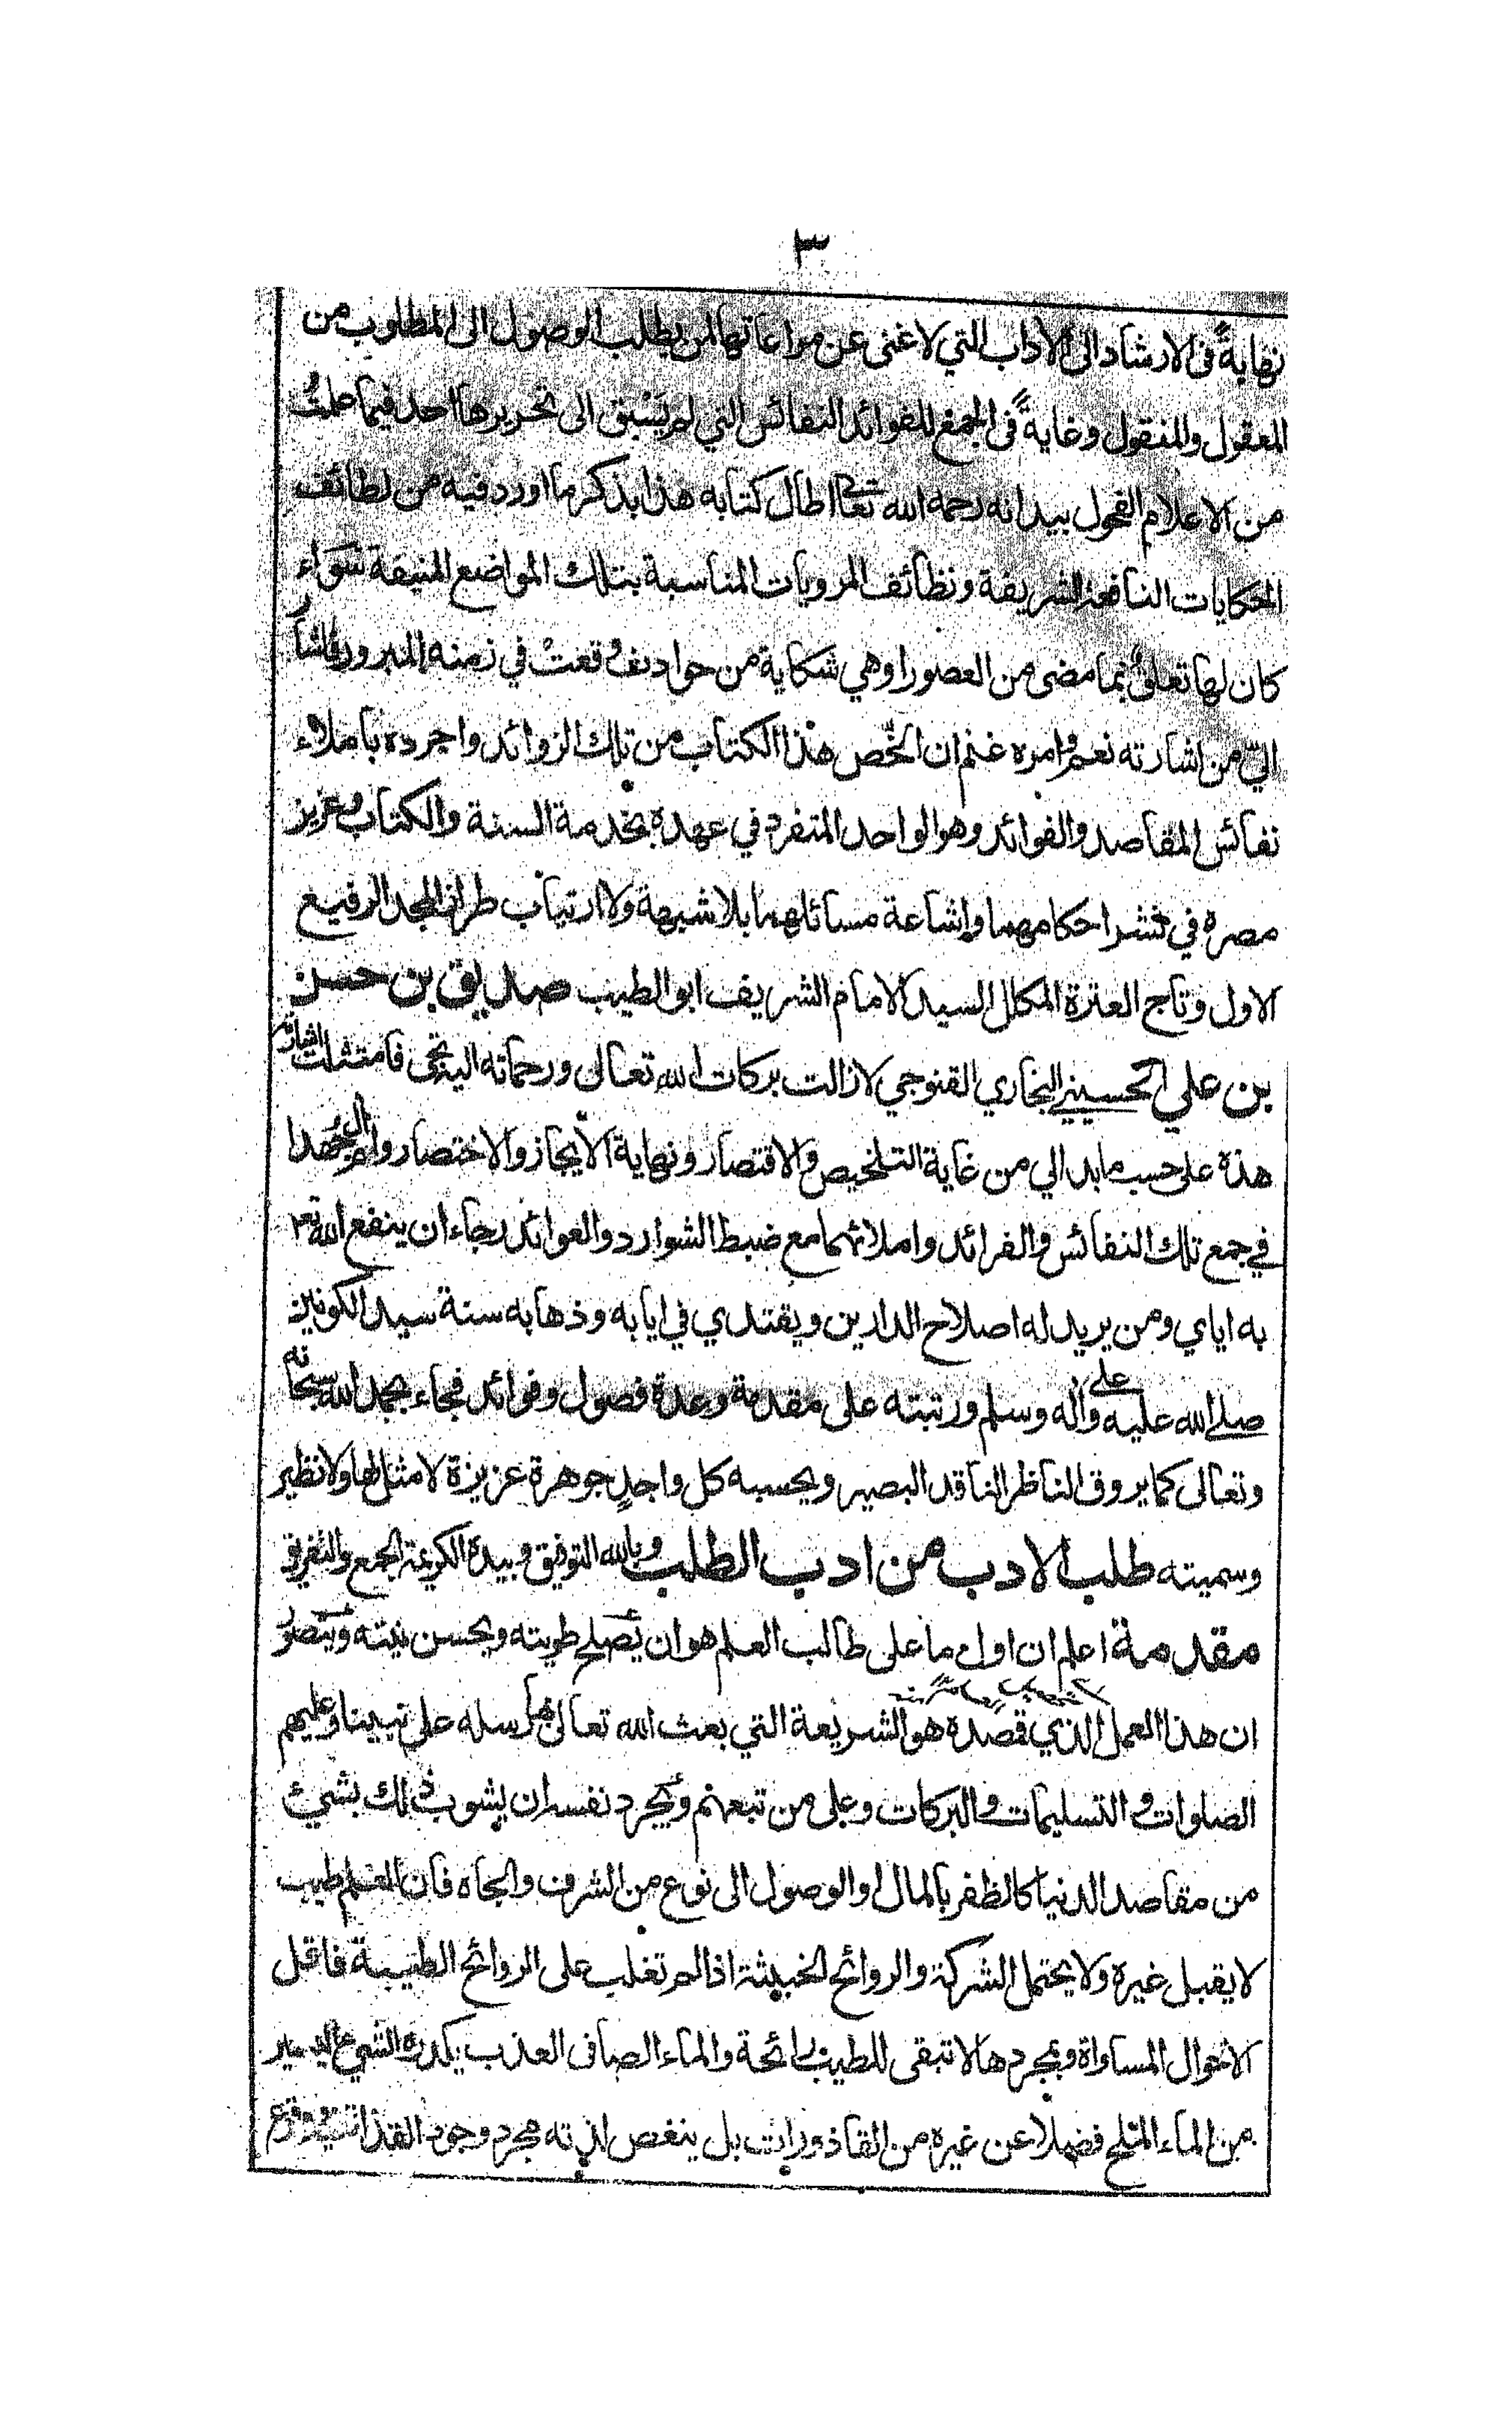 ٣
نهايةً في الارشاد الى الآداب التي لا غنى عن مراعاتها لمن يطلب الوصول الى المطلوب من
المعقول والمنقول وغايةً في الجمع للفوائد النفائس التي لم يَسْبِق الى تحريرها احد فيما علمتُ
من الاعلام الفحول بيد انه رحمه الله تعالى اطال كتابه هذا بذكر ما اورد فيه من لطائف
الحكايات النافعة الشريفة ونظائف المرويات المناسبة بتلك المواضع المنيفة سَوَاء
كان لها تعلقٌ بما مضى من العصور او هي شكاية من حوادث وقعتْ في زمنه المبرور فاشار
اليّ من اشارته نعم وامره غنم ان الخّص هذا الكتاب من تلك الزوائد واجرده باملاء
نفائس المقاصد والفوائد وهو الواحد المتفرد في عهده بخدمة السنة والكتاب وعزيز
مصره في نشر احكامهما واشاعة مسائلهما بلا شبهة ولا ارتياب طراز المجد الرفيع
الاول وتاج العترة المكلل السيد الامام الشريف ابو الطيب صديق بن حسن
بن علي الحسيني البخاري القنوجي لازالت بركات الله تعالى ورحماته اليه تجى فامتثلت اشارته
هذه على حسب ما بدا لي من غاية التلخيص والاقتصار ونهاية الايجاز والاختصار ولم آلُ جُهدا
في جمع تلك النفائس والفرائد واملائها مع ضبط الشوارد والعوائد رجاء ان ينفع الله تعـ
به اياي ومن يريد له اصلاح الدارين ويقتدي في ايابه وذهابه سنة سيد الكونين
صلى الله عليه وعلى آله وسلم ورتبته على مقدمة وعدة فصول وفوائد فجاء بحمد الله سبحانه
وتعالى كما يروق الناظر الناقد البصير ويحسبه كل واجدٍ جوهرة عزيزة لا مثل لها ولا نظير
وسميته طلب الادب من ادب الطلب وبالله التوفيق وبيده الكريمة الجمع والتفريق
مقدمة اعلم ان اول ما على طالب العلم هو ان يُصلح طويته ويحسن نيته ويتصور
ان هذا العمل الذي قصده هو الشريعة التي بعث الله تعالى بها رسله على نبينا وعليهم
الصلوات والتسليمات والبركات وعلى من تبعهم ويُجرد نفسه ان يشوب ذلك بشيئ
من مقاصد الدنيا كالظفر بالمال او الوصول الى نوع من الشرف والجاه فان العلم طيب
لا يقبل غيره ولا يحتمل الشركة والروائح الخبيثة اذا لم تغلب على الروائح الطيبة فاقل
الاحوال المساواة وبمجردها لا تبقى للطيب رائحة والماء الصافى العذب يكدره الشيئ اليسير
من الماء الملح فضلا عن غيره من القاذورات بل ينغص لذته مجرد وجود القذاة